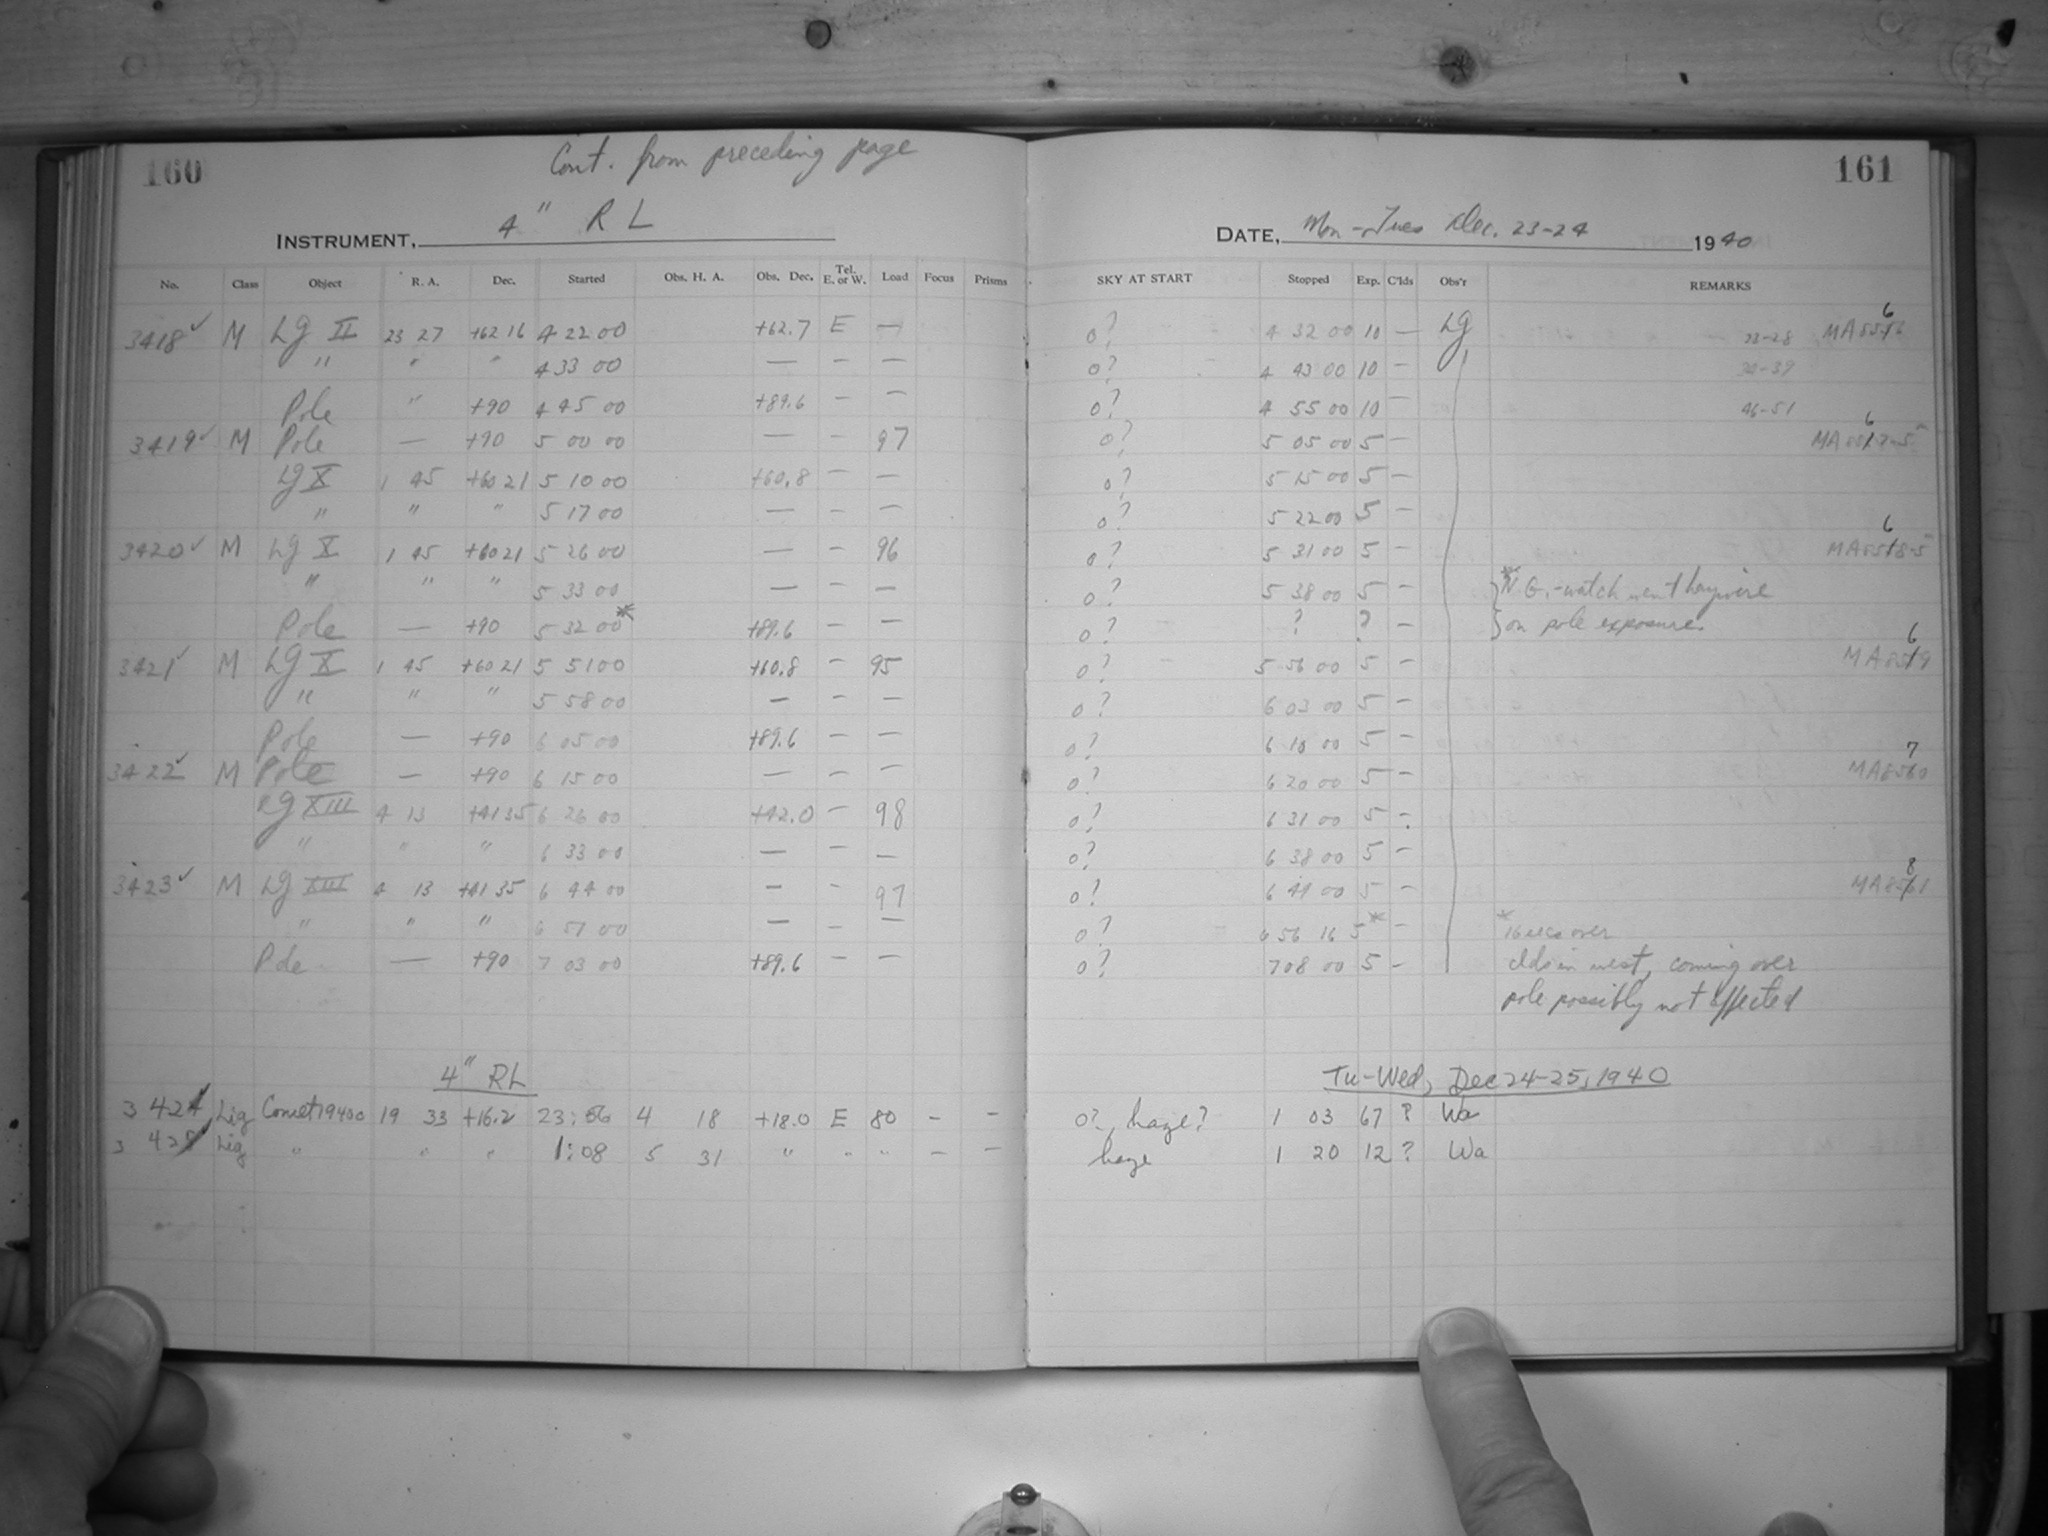 160 Cont. from preceding page 161
INSTRUMENT, 4" R L DATE, Mon-Tues Dec. 23-24 1940
No. Class Object R. A. Dec. Started Obs. H. A. Obs. Dec. Tel. E. or W. Load Focus Prisms SKY AT START Stopped Exp. C'lds Obs'r REMARKS
3418 ✓ M Lg II 23 27 +62 16 4 22 00 +62.7 E — 0? 4 32 00 10 — Lg 23-28
" " " 4 33 00 — — — 0? 4 43 00 10 —
Pole " +90 4 45 00 +89.6 — — 0? 4 55 00 10 — 46-51
3419 ✓ M Pole — +90 5 00 00 — — 97 0? 5 05 00 5 —
Lg X 1 45 +60 21 5 10 00 +60.8 — — 0? 5 15 00 5 —
" " " 5 17 00 — — — 0? 5 22 00 5 —
3420 ✓ M Lg X 1 45 +60 21 5 26 00 — — 96 0? 5 31 00 5 —
" " " 5 33 00 — — — 0? 5 38 00 5 — * N.G.-watch went haywire
Pole — +90 5 32 00* +89.6 — — 0? ? ? — on pole exposure.
3421 ✓ M Lg X 1 45 +60 21 5 51 00 +60.8 — 95 0? 5 56 00 5 —
" " " 5 58 00 — — — 0? 6 03 00 5 —
Pole — +90 6 05 00 +89.6 — — 0? 6 10 00 5 —
3422 ✓ M Pole — +90 6 15 00 — — — 0? 6 20 00 5 —
Lg XIII 4 13 +41 35 6 26 00 +42.0 — 98 0? 6 31 00 5 —
" " " 6 33 00 — — — 0? 6 38 00 5 —
3423 ✓ M Lg XIII 4 13 +41 35 6 44 00 — — 97 0? 6 49 00 5 —
" " " 6 51 00 — — — 0? 6 56 16 5* — * 16 secs over
Pole — +90 7 03 00 +89.6 — — 0? 7 08 00 5 — clds in west, coming over
pole possibly not affected
4" RL Tu-Wed, Dec 24-25, 1940
3 424 Lig Comet 1940c 19 33 +16.2 23:56 4 18 +18.0 E 80 — — 0?, haze? 1 03 67 ? Wa
3 425 Lig " " " 1:08 5 31 " " " — — haze 1 20 12 ? Wa